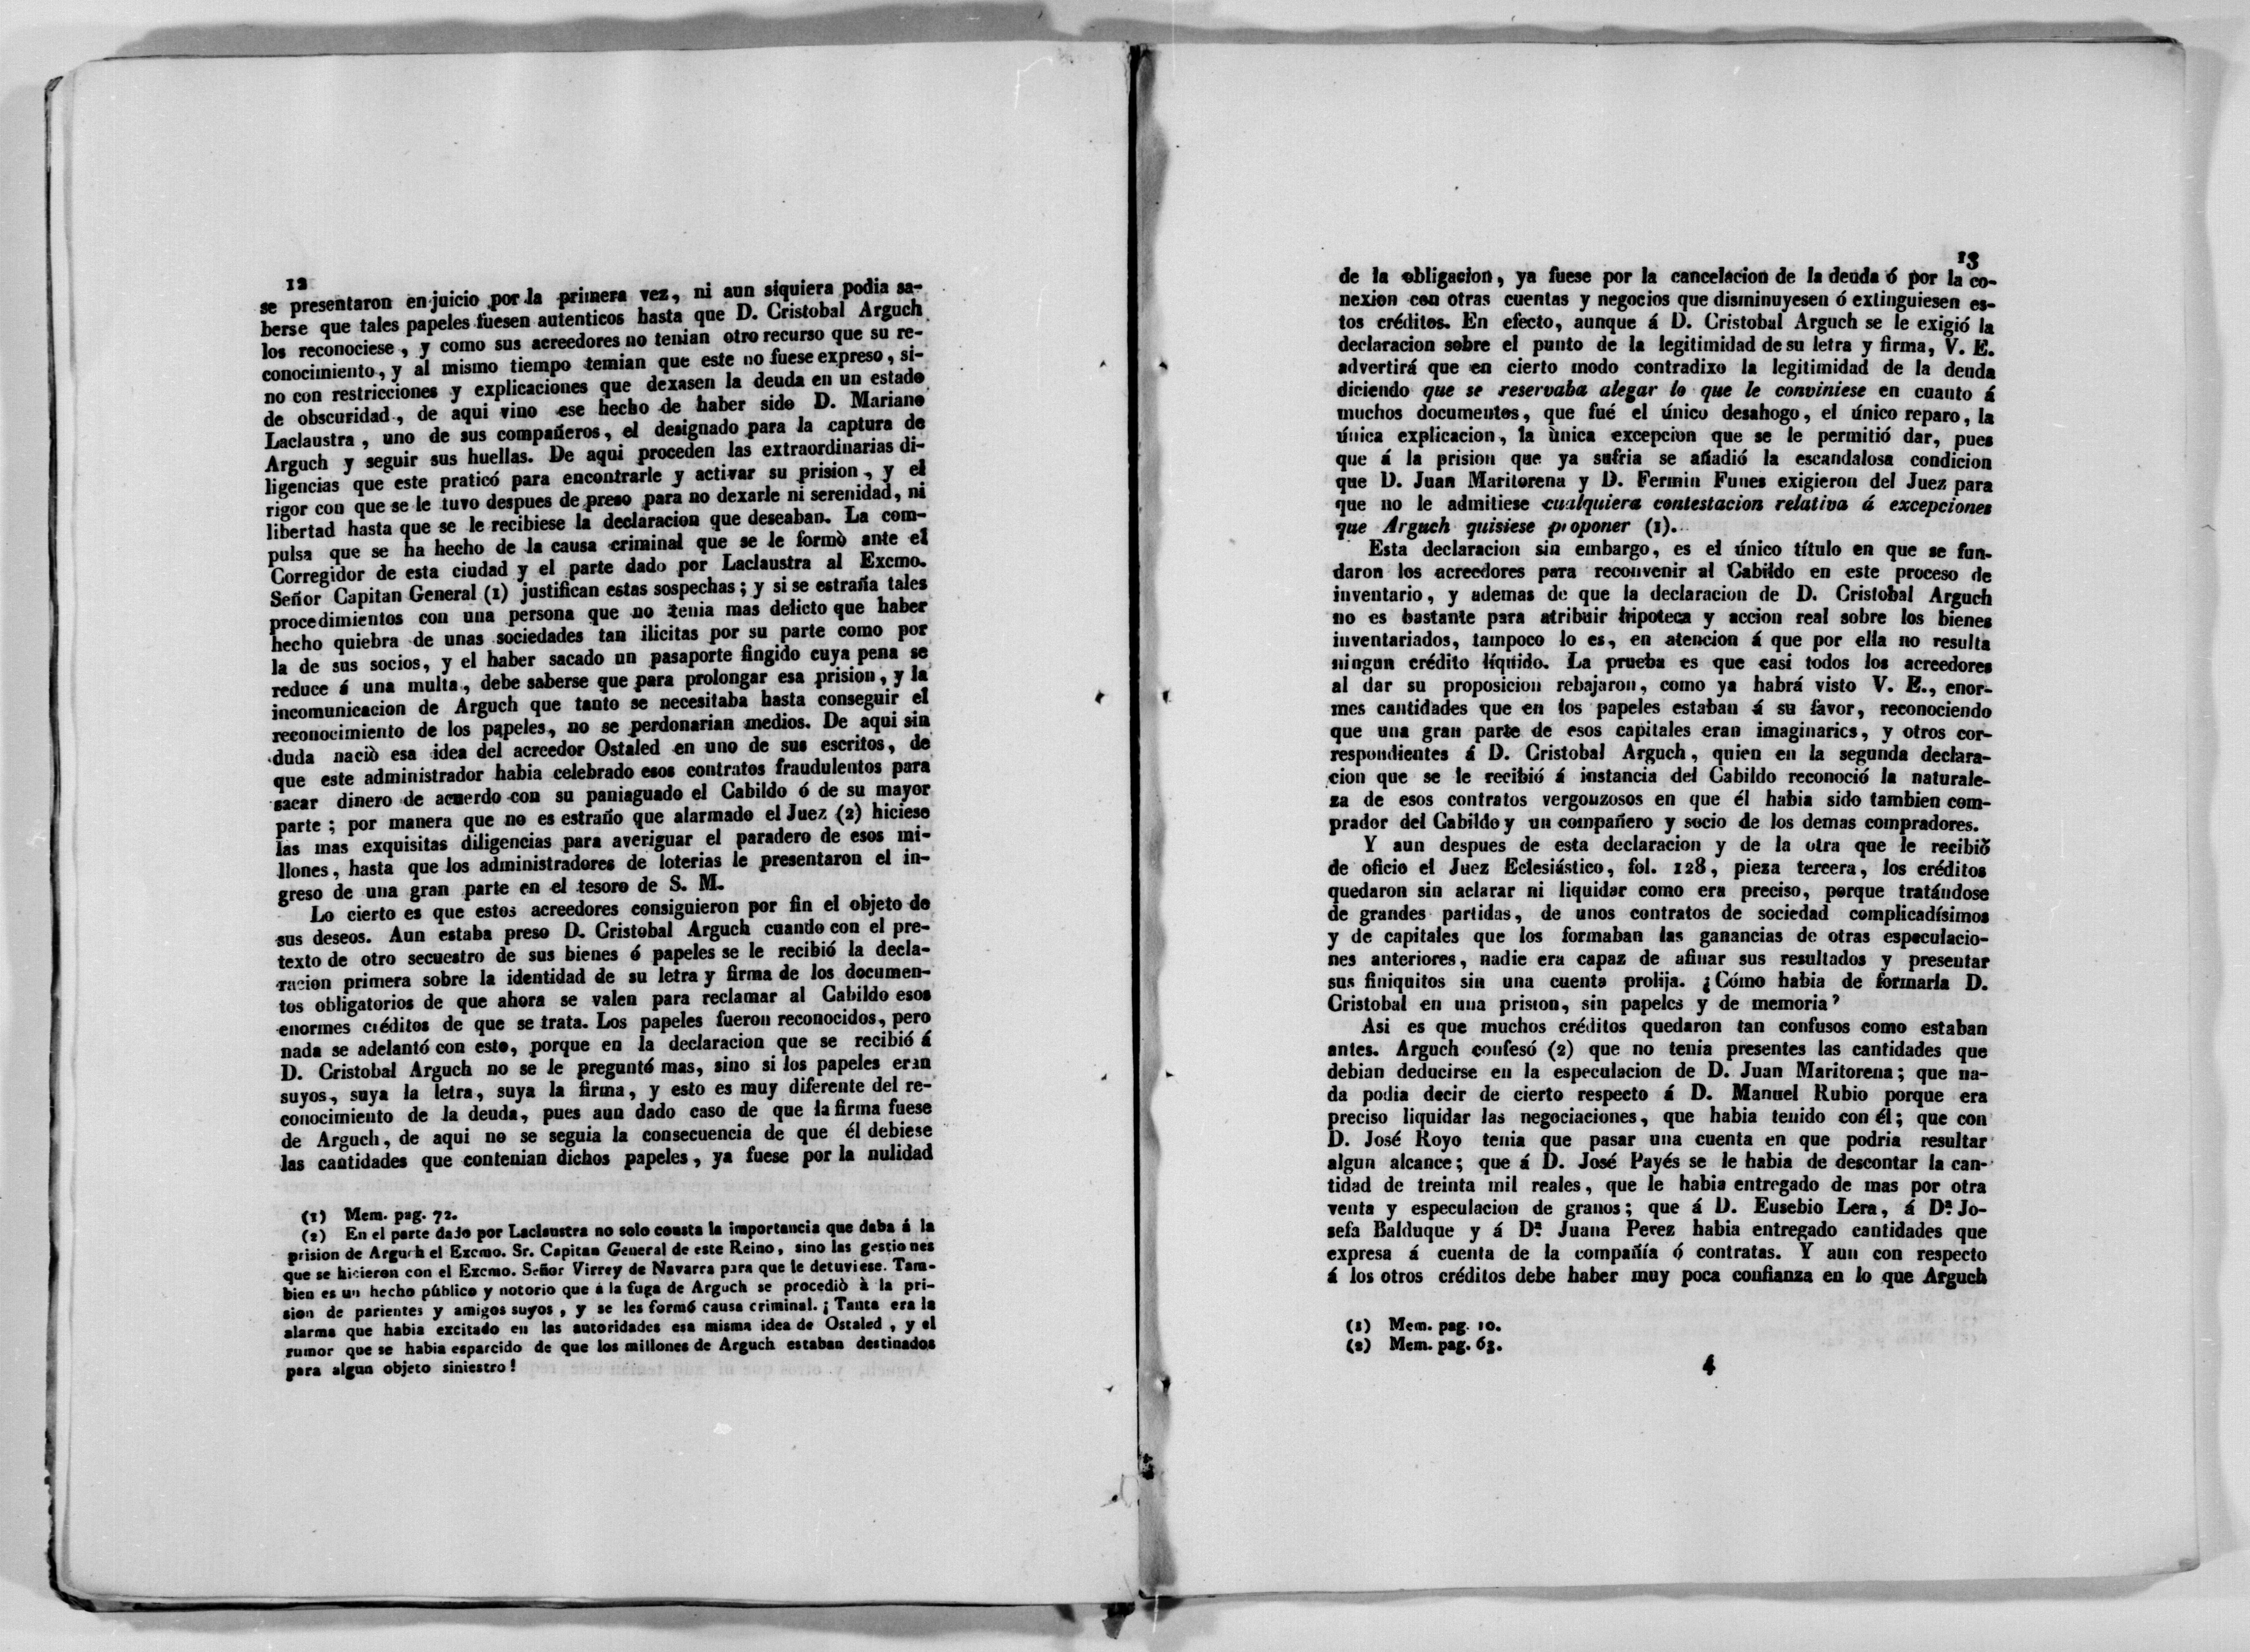 12
se presentaron en juicio por la primera vez, ni aun siquiera podia sa-
berse que tales papeles fuesen autenticos hasta que D. Cristobal Arguch
los reconociese, y como sus acreedores no tenian otro recurso que su re-
conocimiento, y al mismo tiempo temian que este no fuese expreso, si-
no con restricciones y explicaciones que dexasen la deuda en un estado
de obscuridad, de aqui vino ese hecho de haber sido D. Mariano
Laclaustra, uno de sus compañeros, el designado para la captura de
Arguch y seguir sus huellas. De aqui proceden las extraordinarias di-
ligencias que este praticó para encontrarle y activar su prision, y el
rigor con que se le tuvo despues de preso para no dexarle ni serenidad, ni
libertad hasta que se le recibiese la declaracion que deseaban. La com-
pulsa que se ha hecho de la causa criminal que se le formò ante el
Corregidor de esta ciudad y el parte dado por Laclaustra al Excmo.
Señor Capitan General (1) justifican estas sospechas; y si se estraña tales
procedimientos con una persona que no tenia mas delicto que haber
hecho quiebra de unas sociedades tan ilicitas por su parte como por
la de sus socios, y el haber sacado un pasaporte fingido cuya pena se
reduce á una multa, debe saberse que para prolongar esa prision, y la
incomunicacion de Arguch que tanto se necesitaba hasta conseguir el
reconocimiento de los papeles, no se perdonarian medios. De aqui sin
duda naciò esa idea del acreedor Ostaled en uno de sus escritos, de
que este administrador habia celebrado esos contratos fraudulentos para
sacar dinero de acuerdo con su paniaguado el Cabildo ó de su mayor
parte; por manera que no es estraño que alarmado el Juez (2) hiciese
las mas exquisitas diligencias para averiguar el paradero de esos mi-
llones, hasta que los administradores de loterias le presentaron el in-
greso de una gran parte en el tesoro de S. M.
Lo cierto es que estos acreedores consiguieron por fin el objeto de
sus deseos. Aun estaba preso D. Cristobal Arguch cuando con el pre-
texto de otro secuestro de sus bienes ó papeles se le recibió la decla-
racion primera sobre la identidad de su letra y firma de los documen-
tos obligatorios de que ahora se valen para reclamar al Cabildo esos
enormes créditos de que se trata. Los papeles fueron reconocidos, pero
nada se adelantó con esto, porque en la declaracion que se recibió á
D. Cristobal Arguch no se le preguntó mas, sino si los papeles eran
suyos, suya la letra, suya la firma, y esto es muy diferente del re-
conocimiento de la deuda, pues aun dado caso de que la firma fuese
de Arguch, de aqui no se seguia la consecuencia de que él debiese
las cantidades que contenian dichos papeles, ya fuese por la nulidad
(1) Mem. pag. 72.
(2) En el parte dado por Laclaustra no solo consta la importancia que daba á la
prision de Arguch el Excmo. Sr. Capitan General de este Reino, sino las gestiones
que se hicieron con el Excmo. Señor Virrey de Navarra para que le detuviese. Tam-
bien es un hecho público y notorio que á la fuga de Arguch se procediò à la pri-
sion de parientes y amigos suyos, y se les formó causa criminal. ¡Tanta era la
alarma que habia excitado en las autoridades esa misma idea de Ostaled, y el
rumor que se habia esparcido de que los millones de Arguch estaban destinados
para algun objeto siniestro!
13
de la obligacion, ya fuese por la cancelacion de la deuda ó por la co-
nexion con otras cuentas y negocios que disminuyesen ó extinguiesen es-
tos créditos. En efecto, aunque á D. Cristobal Arguch se le exigió la
declaracion sobre el punto de la legitimidad de su letra y firma, V. E.
advertirá que en cierto modo contradixo la legitimidad de la deuda
diciendo que se reservaba alegar lo que le conviniese en cuanto á
muchos documentos, que fué el único desahogo, el único reparo, la
única explicacion, la ùnica excepcion que se le permitió dar, pues
que á la prision que ya sufria se añadió la escandalosa condicion
que D. Juan Maritorena y D. Fermin Funes exigieron del Juez para
que no le admitiese cualquiera contestacion relativa á excepciones
que Arguch quisiese proponer (1).
Esta declaracion sin embargo, es el único título en que se fun-
daron los acreedores para reconvenir al Cabildo en este proceso de
inventario, y ademas de que la declaracion de D. Cristobal Arguch
no es bastante para atribuir hipoteca y accion real sobre los bienes
inventariados, tampoco lo es, en atencion á que por ella no resulta
ningun crédito líquido. La prueba es que casi todos los acreedores
al dar su proposicion rebajaron, como ya habrá visto V. E., enor-
mes cantidades que en los papeles estaban á su favor, reconociendo
que una gran parte de esos capitales eran imaginarios, y otros cor-
respondientes á D. Cristobal Arguch, quien en la segunda declara-
cion que se le recibió á instancia del Cabildo reconoció la naturale-
za de esos contratos vergonzosos en que él habia sido tambien com-
prador del Cabildo y un compañero y socio de los demas compradores.
Y aun despues de esta declaracion y de la otra que le recibiò
de oficio el Juez Eclesiástico, fol. 128, pieza tercera, los créditos
quedaron sin aclarar ni liquidar como era preciso, porque tratándose
de grandes partidas, de unos contratos de sociedad complicadísimos
y de capitales que los formaban las ganancias de otras especulacio-
nes anteriores, nadie era capaz de afinar sus resultados y presentar
sus finiquitos sin una cuenta prolija. ¿Cómo habia de formarla D.
Cristobal en una prision, sin papeles y de memoria?
Asi es que muchos créditos quedaron tan confusos como estaban
antes. Arguch confesó (2) que no tenia presentes las cantidades que
debian deducirse en la especulacion de D. Juan Maritorena; que na-
da podia decir de cierto respecto á D. Manuel Rubio porque era
preciso liquidar las negociaciones, que habia tenido con él; que con
D. José Royo tenia que pasar una cuenta en que podria resultar
algun alcance; que á D. José Payés se le habia de descontar la can-
tidad de treinta mil reales, que le habia entregado de mas por otra
venta y especulacion de granos; que á D. Eusebio Lera, á Dª. Jo-
sefa Balduque y á Dª. Juana Perez habia entregado cantidades que
expresa á cuenta de la compañía ó contratas. Y aun con respecto
á los otros créditos debe haber muy poca confianza en lo que Arguch
(1) Mem. pag. 10.
(2) Mem. pag. 63.
4